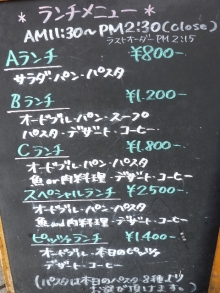 * ランチメニュー *
AM11:30~PM2:30(close)
ラストオーダーPM2:15
Aランチ ¥800-
サラダ・パン・パスタ
Bランチ ¥1.200-
オードブル・パン・スープ
パスタ・デザート・コーヒー
Cランチ ¥1.800-
オードブル・パン・パスタ
魚or肉料理・デザート・コーヒー
スペシャルランチ ¥2.500-
オードブル・パン・パスタ
魚and肉料理・デザート・コーヒー
ピッツァランチ ¥1.400-
オードブル・本日のピッツァ
デザート・コーヒー
(パスタは本日のパスタ8種より
お選び頂けます。)